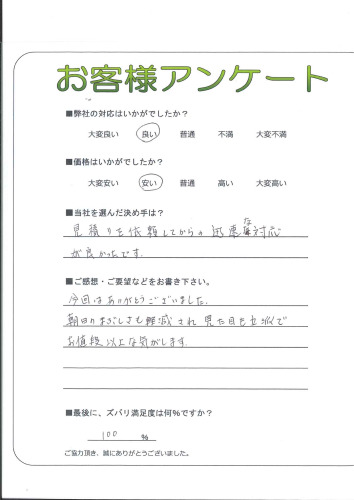 お客様アンケート
■弊社の対応はいかがでしたか?
大変良い 良い 普通 不満 大変不満
■価格はいかがでしたか?
大変安い 安い 普通 高い 大変高い
■当社を選んだ決め手は?
見積りを依頼してからの迅速な対応
が良かったです。
■ご感想・ご要望などをお書き下さい。
今回はありがとうございました。
朝日のまぶしさも軽減され見た目も立派で
お値段以上な気がします。
■最後に、ズバリ満足度は何%ですか?
100 %
ご協力頂き、誠にありがとうございました。